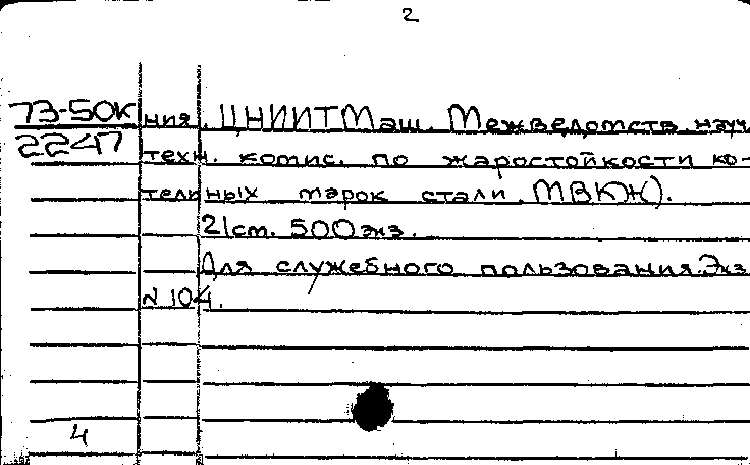 2
73-50К ния. ЦНИИТМаш. Межведомств. науч.
2247 техн. комис. по жаростойкости ко-
тельных марок стали. МВКЖ).
21см. 500экз.
Для служебного пользования. Экз.
№ 104.
4